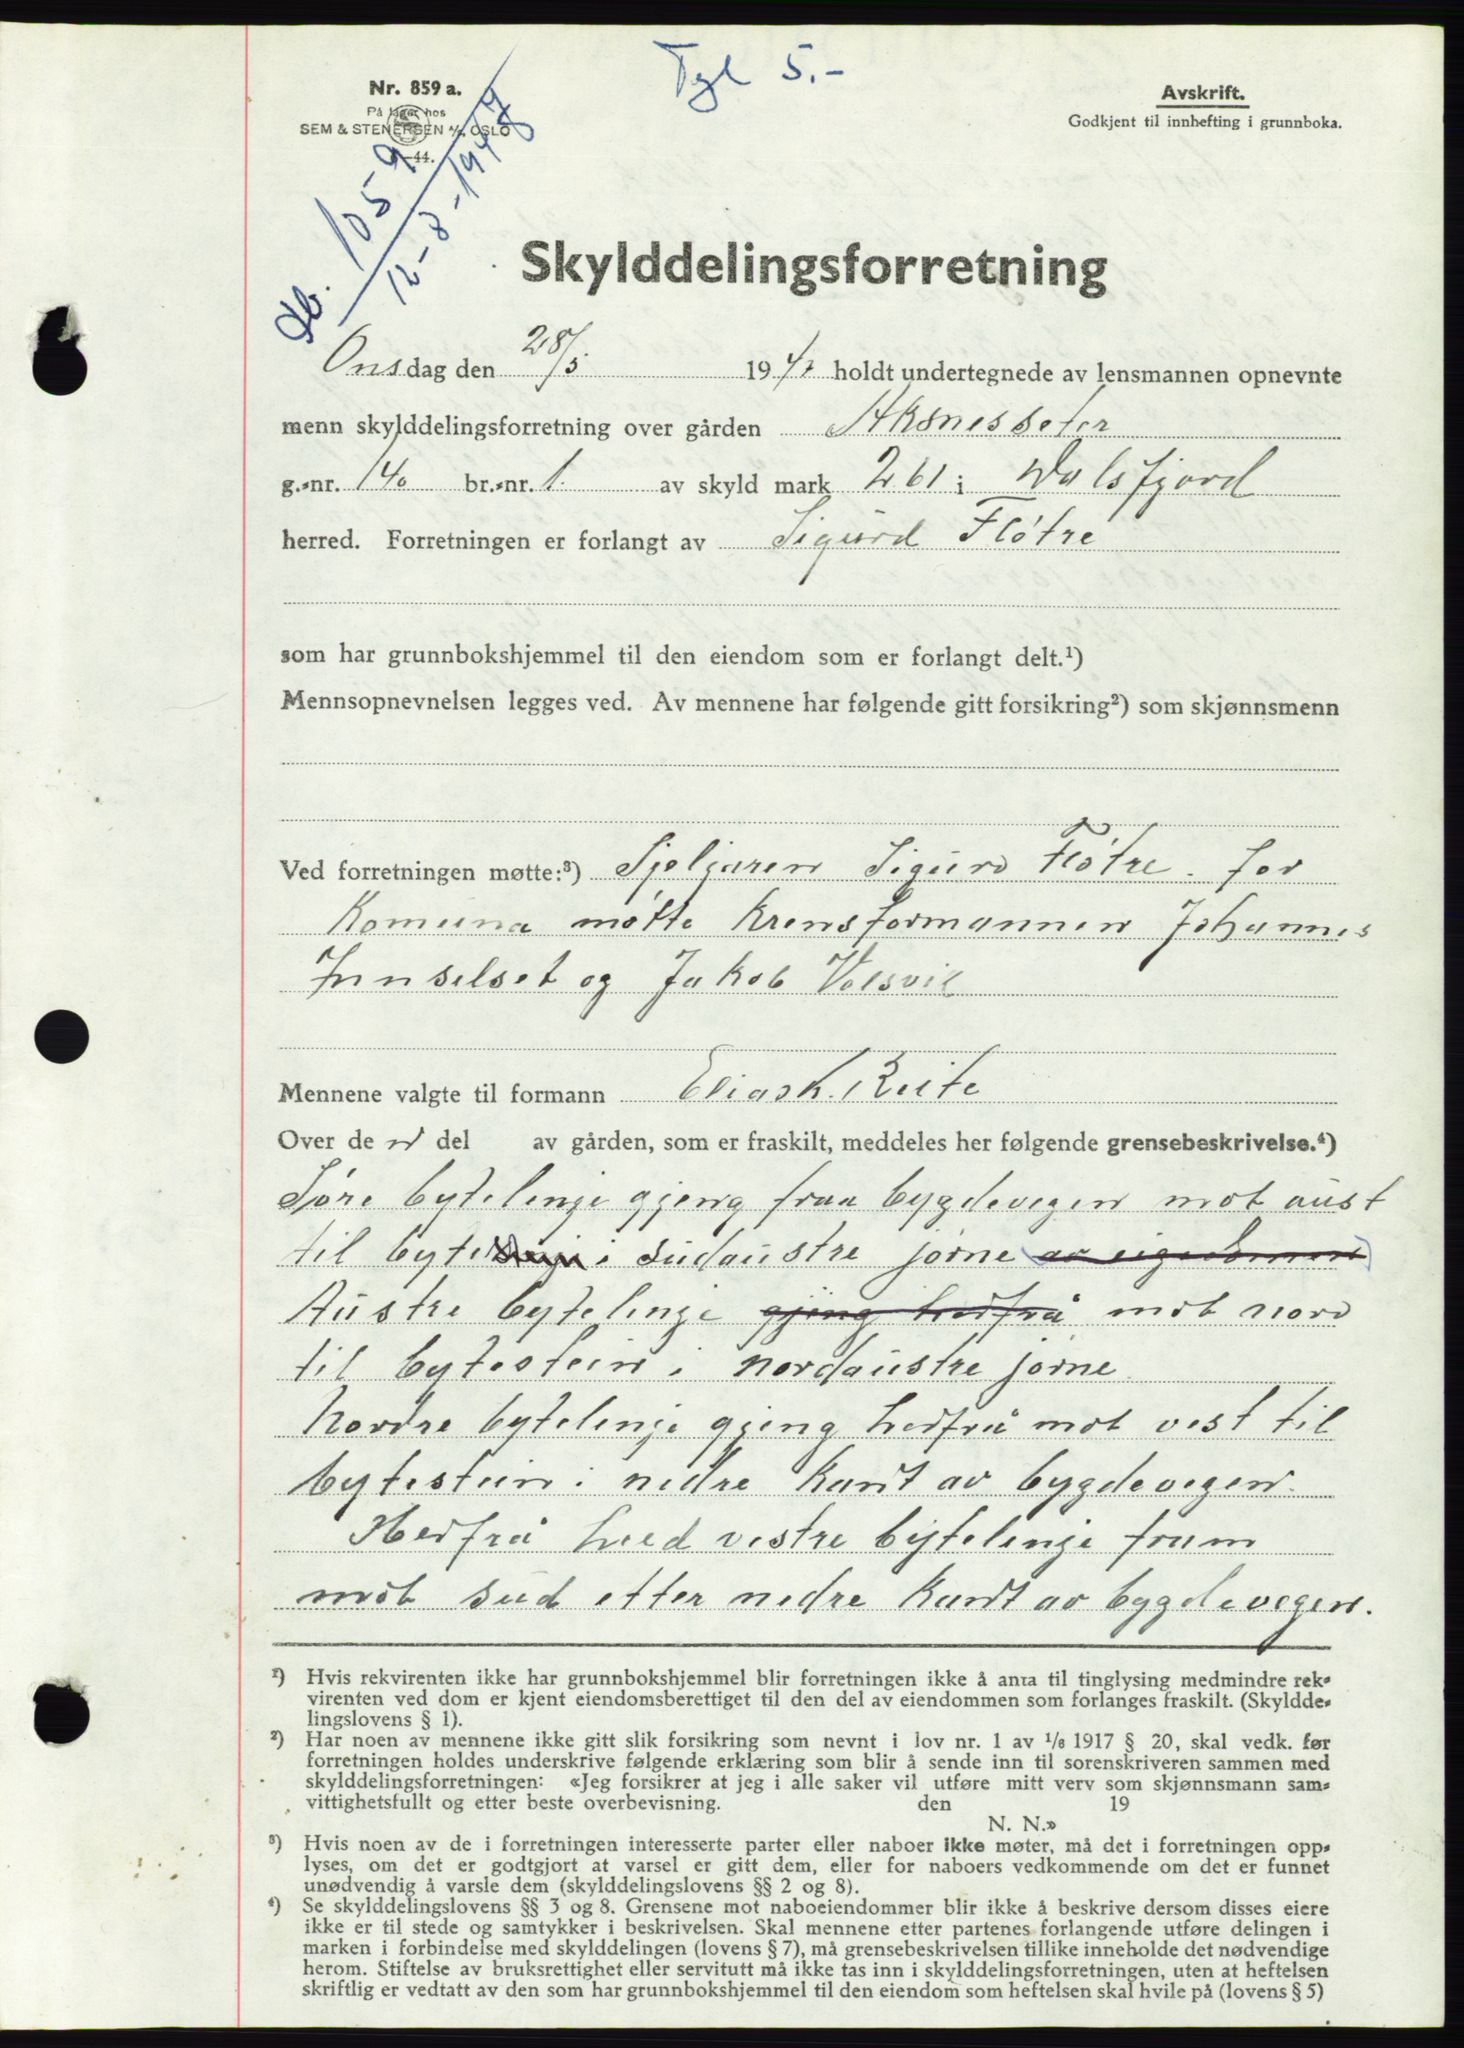 Tgl 5.-
Nr. 859 a.
På lager hos
SEM & STENERSEN A/S, OSLO
44.
Avskrift.
Godkjent til innhefting i grunnboka.
Db. 1059
12-8-1947
Skylddelingsforretning
Onsdag den 28/5 1947 holdt undertegnede av lensmannen opnevnte
menn skylddelingsforretning over gården Aksnesseter
g.-nr. 140 br.-nr. 1. av skyld mark 261 i Dalsfjord
herred. Forretningen er forlangt av Sigurd Fløtre
som har grunnbokshjemmel til den eiendom som er forlangt delt.¹)
Mennsopnevnelsen legges ved. Av mennene har følgende gitt forsikring²) som skjønnsmenn
Ved forretningen møtte:³) Sjeljaren Sigurd Fløtre. for
Komuna møtte Krensformannen Johannes
Innselset og Jakob Valsvik
Mennene valgte til formann Elias K. Reite
Over den del av gården, som er fraskilt, meddeles her følgende grensebeskrivelse.⁴)
Søre bytelinje gjeng fraa bygdevegen mot aust
til bytestein i sudaustre jorne av eigedomen
Austre bytelinje gjeng herfrå mot nord
til bytestein i nordaustre jorne
Nordre bytelinje gjeng herfrå mot vest til
bytestein i nedre kant av bygdevegen.
Herfrå held vestre bytelinje fram
mot sud etter nedre kant av bygdevegen.
¹) Hvis rekvirenten ikke har grunnbokshjemmel blir forretningen ikke å anta til tinglysing medmindre rek-
virenten ved dom er kjent eiendomsberettiget til den del av eiendommen som forlanges fraskilt. (Skyldde-
lingslovens § 1).
²) Har noen av mennene ikke gitt slik forsikring som nevnt i lov nr. 1 av 1/6 1917 § 20, skal vedk. før
forretningen holdes underskrive følgende erklæring som blir å sende inn til sorenskriveren sammen med
skylddelingsforretningen: «Jeg forsikrer at jeg i alle saker vil utføre mitt verv som skjønnsmann sam-
vittighetsfullt og etter beste overbevisning. den 19
N. N.»
³) Hvis noen av de i forretningen interesserte parter eller naboer ikke møter, må det i forretningen opp-
lyses, om det er godtgjort at varsel er gitt dem, eller for naboers vedkommende om det er funnet
unødvendig å varsle dem (skylddelingslovens §§ 2 og 8).
⁴) Se skylddelingslovens §§ 3 og 8. Grensene mot naboeiendommer blir ikke å beskrive dersom disses eiere
ikke er til stede og samtykker i beskrivelsen. Skal mennene etter partenes forlangende utføre delingen i
marken i forbindelse med skylddelingen (lovens § 7), må grensebeskrivelsen tillike inneholde det nødvendige
herom. Stiftelse av bruksrettighet eller servitutt må ikke tas inn i skylddelingsforretningen, uten at heftelsen
skriftlig er vedtatt av den som har grunnbokshjemmel til den eiendom som heftelsen skal hvile på (lovens § 5)